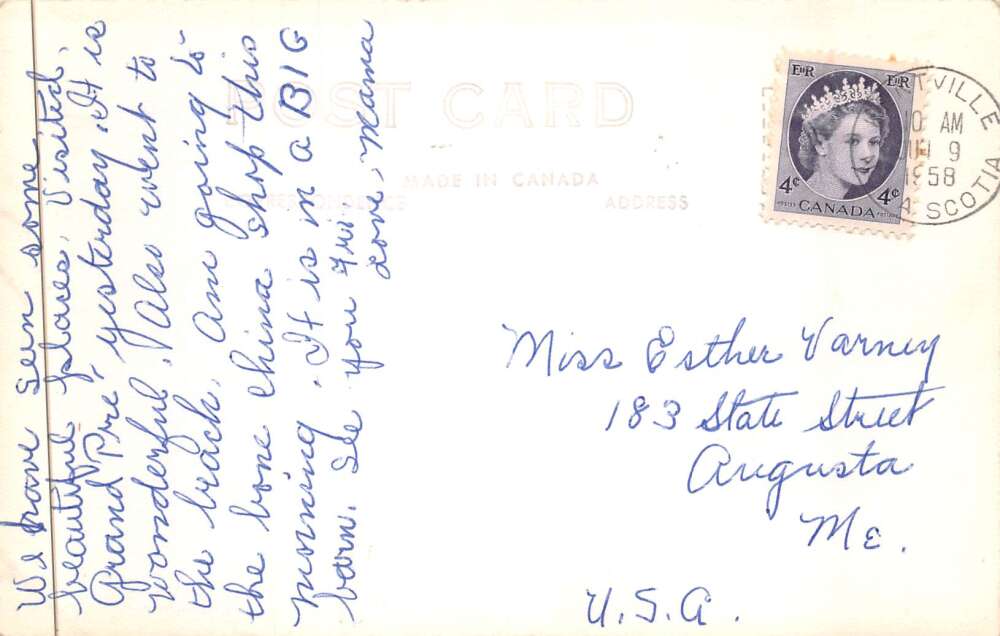 We have seen some
beautiful places. Visited
Grand Pré, yesterday. It is
wonderful. Also went to
the beach. Am going to
the bone china shop this
morning. It is in a BIG
barn. See you Fri.
Love, Mama
POST CARD
MADE IN CANADA
CORRESPONDENCE
ADDRESS
EIIR EIIR
4¢ 4¢
POSTES CANADA POSTAGE
TVILLE
10 AM
9
1958
SCOTIA
Miss Esther Varney
183 State Street
Augusta
Me.
U.S.A.